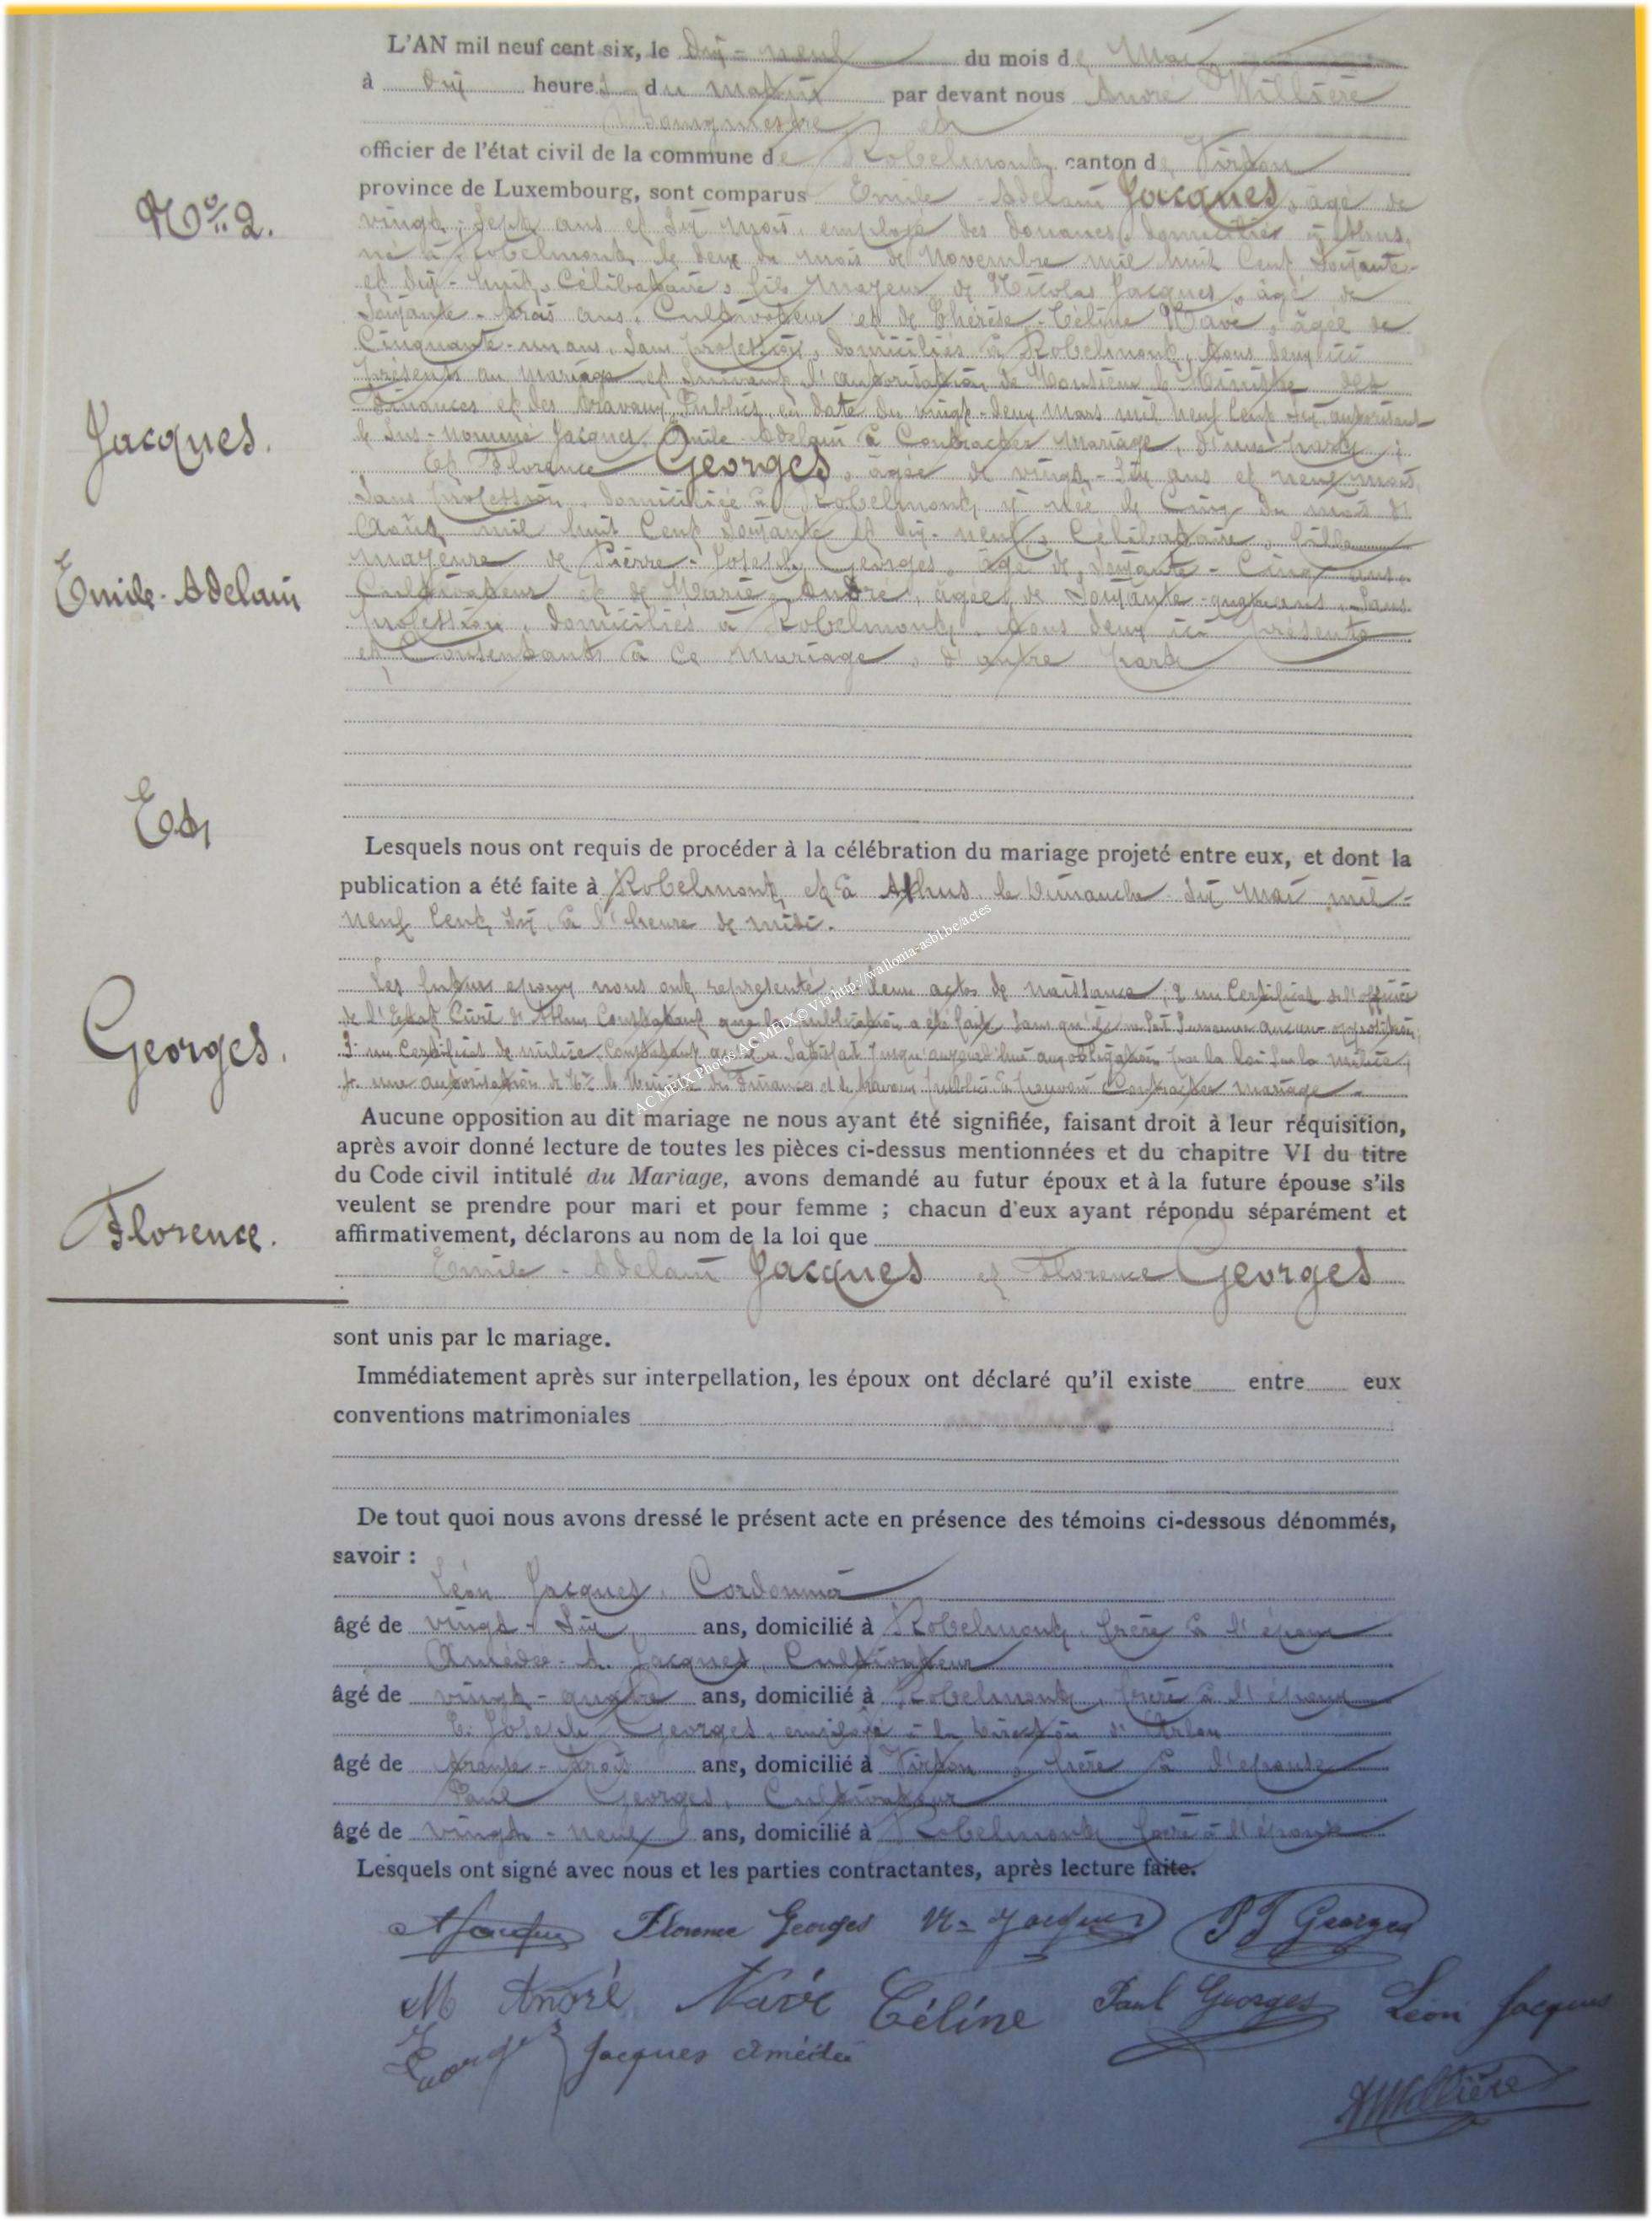 L'AN mil neuf cent six, le dix-neuf du mois de Mai
à dix heures du matin par devant nous André Willière
Bourgmestre et
officier de l'état civil de la commune de Robelmont canton de Virton
N° 2.
province de Luxembourg, sont comparus Emile-Adelain Jacques, âgé de
vingt-sept ans et six mois, employé des douanes, domicilié à Athus,
né à Robelmont le deux du mois de Novembre mil huit cent soixante-
et dix-huit, célibataire, fils majeur de Nicolas Jacques, âgé de
soixante-trois ans, Cultivateur et de Thérèse-Céline Navé, âgée de
Cinquante-un ans, sans profession, domiciliés à Robelmont, tous deux ici
présents au mariage, et suivant l'autorisation de Monsieur le Ministre des
Finances et des travaux Publics, en date du vingt-deux mars mil neuf cent six, autorisant
Jacques.
le sus-nommé Jacques, Emile-Adelain à Contracter mariage, d'une part ;
Et Florence Georges, âgée de vingt-six ans et neuf mois,
sans profession, domiciliée à Robelmont, y née le Cinq du mois de
Août mil huit cent soixante et dix-neuf, Célibataire, fille
majeure de Pierre-Joseph Georges, âgé de soixante-Cinq ans,
Emile-Adelain
Cultivateur et de Marie André, âgée de soixante-quatre ans, sans
profession, domiciliés à Robelmont, tous deux ici présents
et Consentants à ce mariage, d'autre part
Et
Lesquels nous ont requis de procéder à la célébration du mariage projeté entre eux, et dont la
publication a été faite à Robelmont et à Athus, le Dimanche six mai mil-
neuf cent six, à l'heure de midi.
Les futurs époux nous ont représenté deux actes de naissance; 2 un Certificat de l'officier
de l'Etat Civil de Athus Constatant que la publication a été faite sans qu'il soit survenu aucune opposition,
Georges.
3. un certificat de milice, constatant qu'il a satisfait jusqu'aujourd'hui aux obligations par la loi sur la milice,
4. une autorisation de Mr le Ministre des Finances et des travaux publics de pouvoir Contracter mariage.
Aucune opposition au dit mariage ne nous ayant été signifiée, faisant droit à leur réquisition,
après avoir donné lecture de toutes les pièces ci-dessus mentionnées et du chapitre VI du titre
du Code civil intitulé du Mariage, avons demandé au futur époux et à la future épouse s'ils
veulent se prendre pour mari et pour femme ; chacun d'eux ayant répondu séparément et
Florence.
affirmativement, déclarons au nom de la loi que
Emile-Adelain Jacques et Florence Georges
sont unis par le mariage.
Immédiatement après sur interpellation, les époux ont déclaré qu'il existe entre eux
conventions matrimoniales
De tout quoi nous avons dressé le présent acte en présence des témoins ci-dessous dénommés,
savoir :
Léon Jacques, Cordonnier
âgé de vingt-six ans, domicilié à Robelmont, frère à l'époux
Amédée-A. Jacques, Cultivateur
âgé de vingt-quatre ans, domicilié à Robelmont, frère à l'époux
E. Joseph Georges, employé à la Direction d'Arlon
âgé de trente-trois ans, domicilié à Virton, frère à l'épouse
Paul Georges, Cultivateur
âgé de vingt-neuf ans, domicilié à Robelmont, frère à l'épouse
Lesquels ont signé avec nous et les parties contractantes, après lecture faite.
AJacques Florence Georges N. Jacques PJ Georges
M André Navé Céline Paul Georges Léon Jacques
E Georges Jacques Amédée
AWillière
AC MEIX Photos AC MEIX© Via http://wallonia-asbl.be/actes